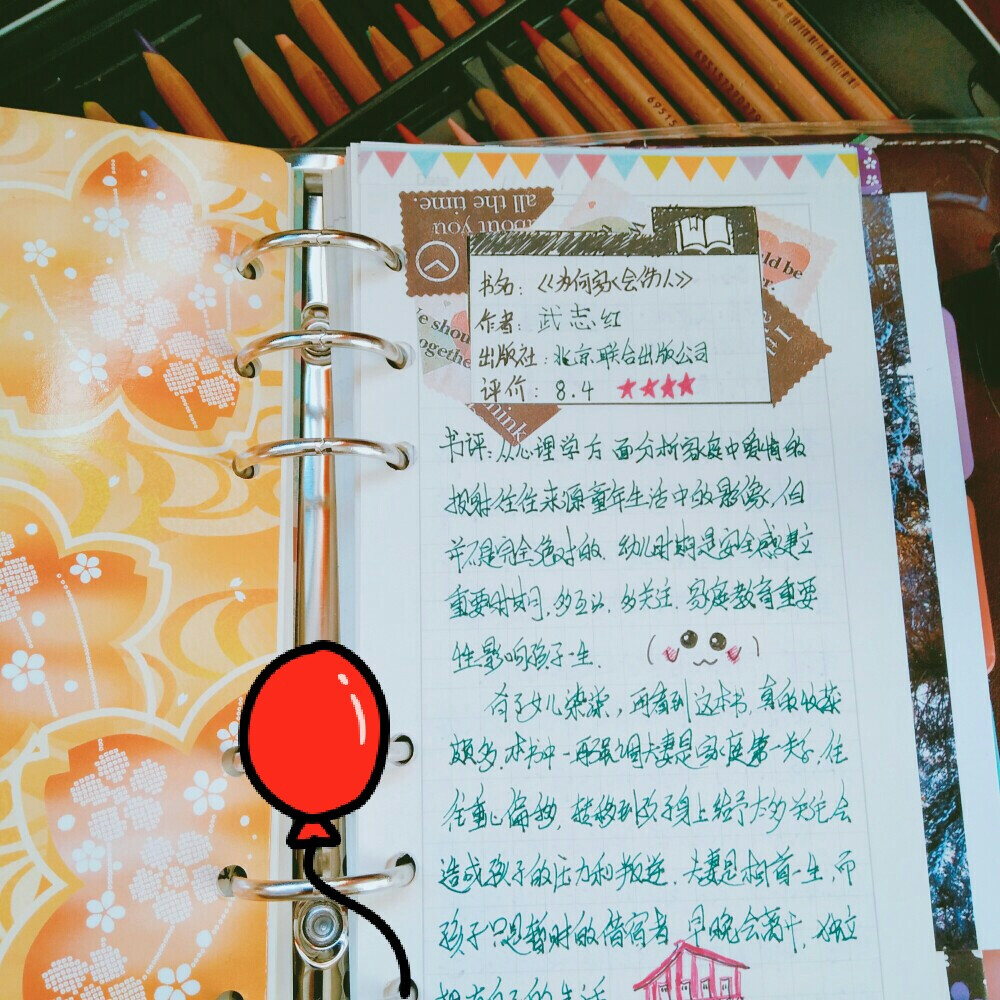 all the time.
about you
书名：《为何家会伤人》
作者：武志红
出版社：北京联合出版公司
评价：8.4 ★★★★
书评：从心理学方面分析家庭中爱情的
投射往往来源童年生活中的影像，但
并不是完全绝对的．幼儿时期是安全感建立
重要时期，多互认，多关注．家庭教育重要
性影响孩子一生．
有了女儿柒柒，再看到这本书，真的收获
颇多，本书中一再强调夫妻是家庭第一关系．往
往重心偏移，转移到孩子身上给予太多关心会
造成孩子的压力和叛逆．夫妻是相首一生，而
孩子只是暂时的借宿者，早晚会离开，独立
拥有自己的生活
think
69515